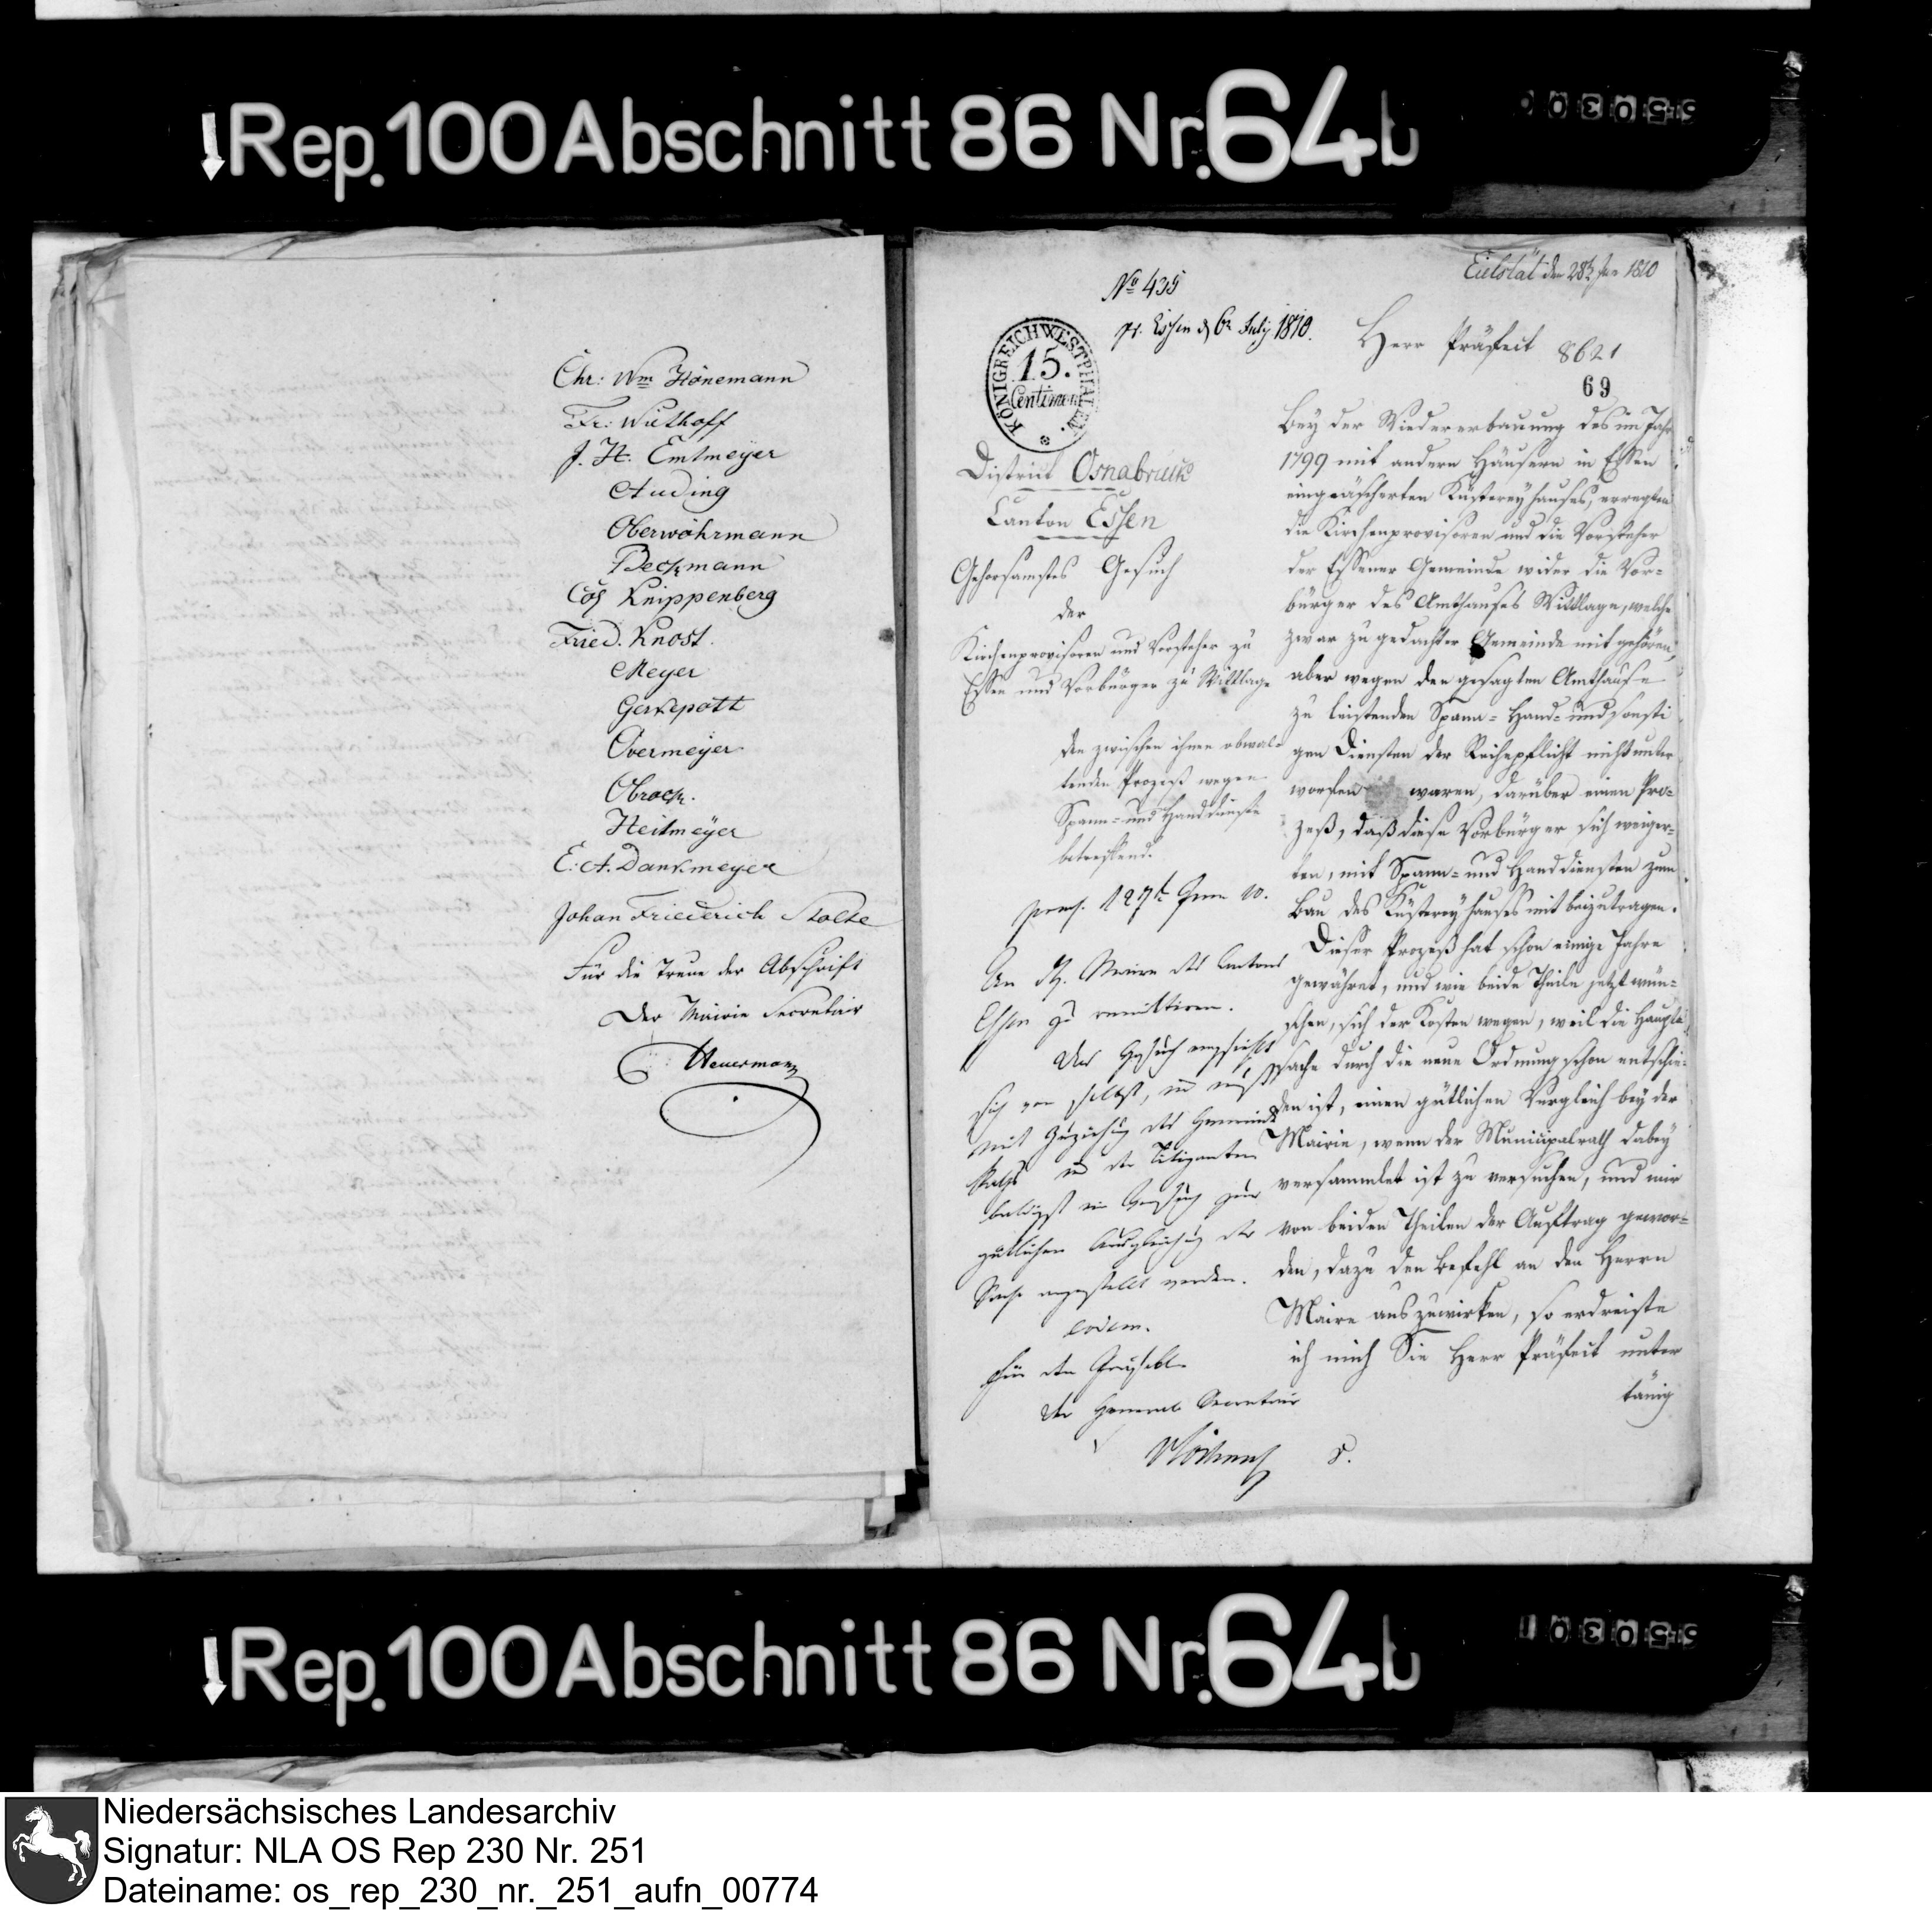 Rep. 100 Abschnitt 86 Nr. 64b
Chr: Wm Hönemann
Fr: Withoff
J. H. Emlmeyer
Auding
Oberwöhrmann
Beckmann
Cös Knippenberg
Fried. Knost.
Meyer
Gerkepott
Overmeyer
Obrock.
Heitmeyer
E: A. Dankmeyer
Johan Friederich Stolte
Für die Treue der Abschrift
Der Mairie Secretair
Heuermann
Eielstät den 28t Jun 1810
No 435
pr. Essen d 6n July 1810.
KÖNIGREICH WESTPHALEN.
15.
Centimen
Herr Präfect
8621
69
District Osnabruck
Canton Essen
Gehorsamstes Gesuch
der
Kirchenprovisoren und Vorsteher zu
Essen und Vorbürger zu Wittlage
den zwischen ihnen obwal-
tenden Prozeß wegen
Spann- und Handdienste
betreffend.
An den Maire des Cantons
Essen zu remittiren.
Das Gesuch empfiehlt
sich von selbst, und muß
mit Zuziehung des Gemeinde
Raths und der Litiganten
baldigst ein Versuch zur
gütlichen Ausgleichung der
Sache angestellt werden.
eodem.
Für den Präfekten
Der General Secretair
Bey der Wiedererbauung des im Jahr
1799 mit andern Häusern in Essen
eingeäscherten Küstereyhauses, erregten
die Kirchenprovisoren und die Vorsteher
der Essener Gemeinde wider die Vor-
bürger des Amthauses Wittlage, welche
zwar zu gedachter Gemeinde mit gehören,
aber wegen den gesagten Amthause
zu leistenden Spann- Hand- und sonsti
gen Diensten der Reihepflicht nicht unter
worfen waren, darüber einen Pro-
zeß, daß diese Vorbürger sich weiger-
ten, mit Spann- und Handdiensten zum
Bau des Küstereyhauses mit beizutragen.
Dieser Prozeß hat schon einige Jahre
gewähret, und wie beide Theile jetzt wün-
schen, sich der Kosten wegen, weil die Haupt
sache durch die neue Ordnung schon entschie-
den ist, einen gütlichen Vergleich bey der
Mairie, wenn der Municipalrath dabey
versammlet ist zu versuchen, und mir
von beiden Theilen der Auftrag gewor-
den, dazu den Befehl an den Herrn
Maire auszuwirken, so erdreiste
ich mich Sie Herr Präfect unter
tänig
Rep. 100 Abschnitt 86 Nr. 64b
Niedersächsisches Landesarchiv
Signatur: NLA OS Rep 230 Nr. 251
Dateiname: os_rep_230_nr._251_aufn_00774